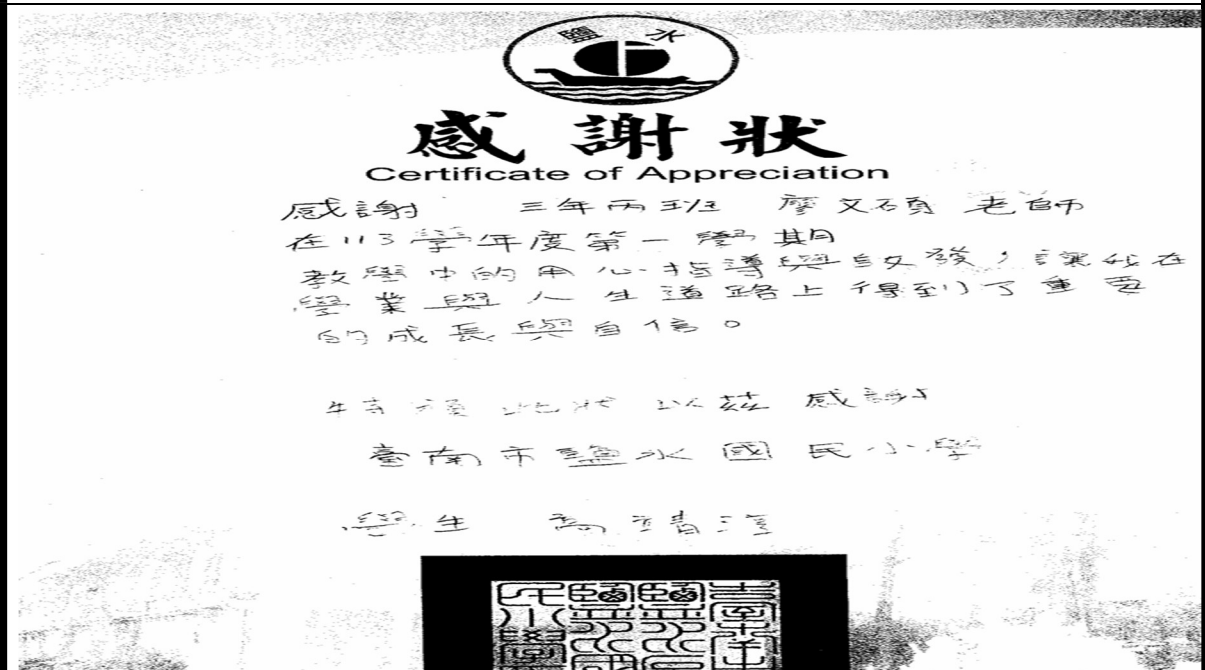 鹽水
感謝狀
Certificate of Appreciation
感謝 三年丙班 廖文碩 老師
在113學年度第一學期
教學中的用心指導與啟發，讓我在
學業與人生道路上得到了重要
的成長與自信。
特頒此狀 以茲 感謝
臺南市鹽水國民小學
學生